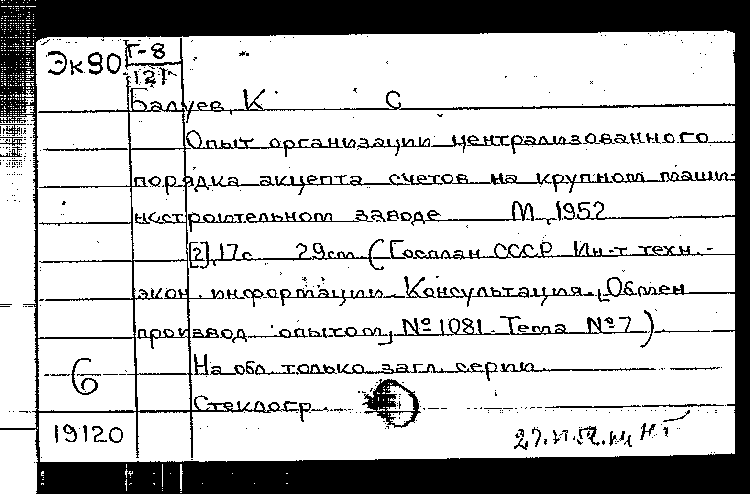 Эк90 Г-8
121
Балуев, К С
Опыт организации централизованного
порядка акцепта счетов на крупном маши-
ностроительном заводе М, 1952
[2], 17с 29см (Госплан СССР Ин-т техн.-
экон. информации Консультация, [Обмен
производ. опытом], № 1081. Тема № 7)
На обл. только загл. серии
Стеклогр.
6
19120